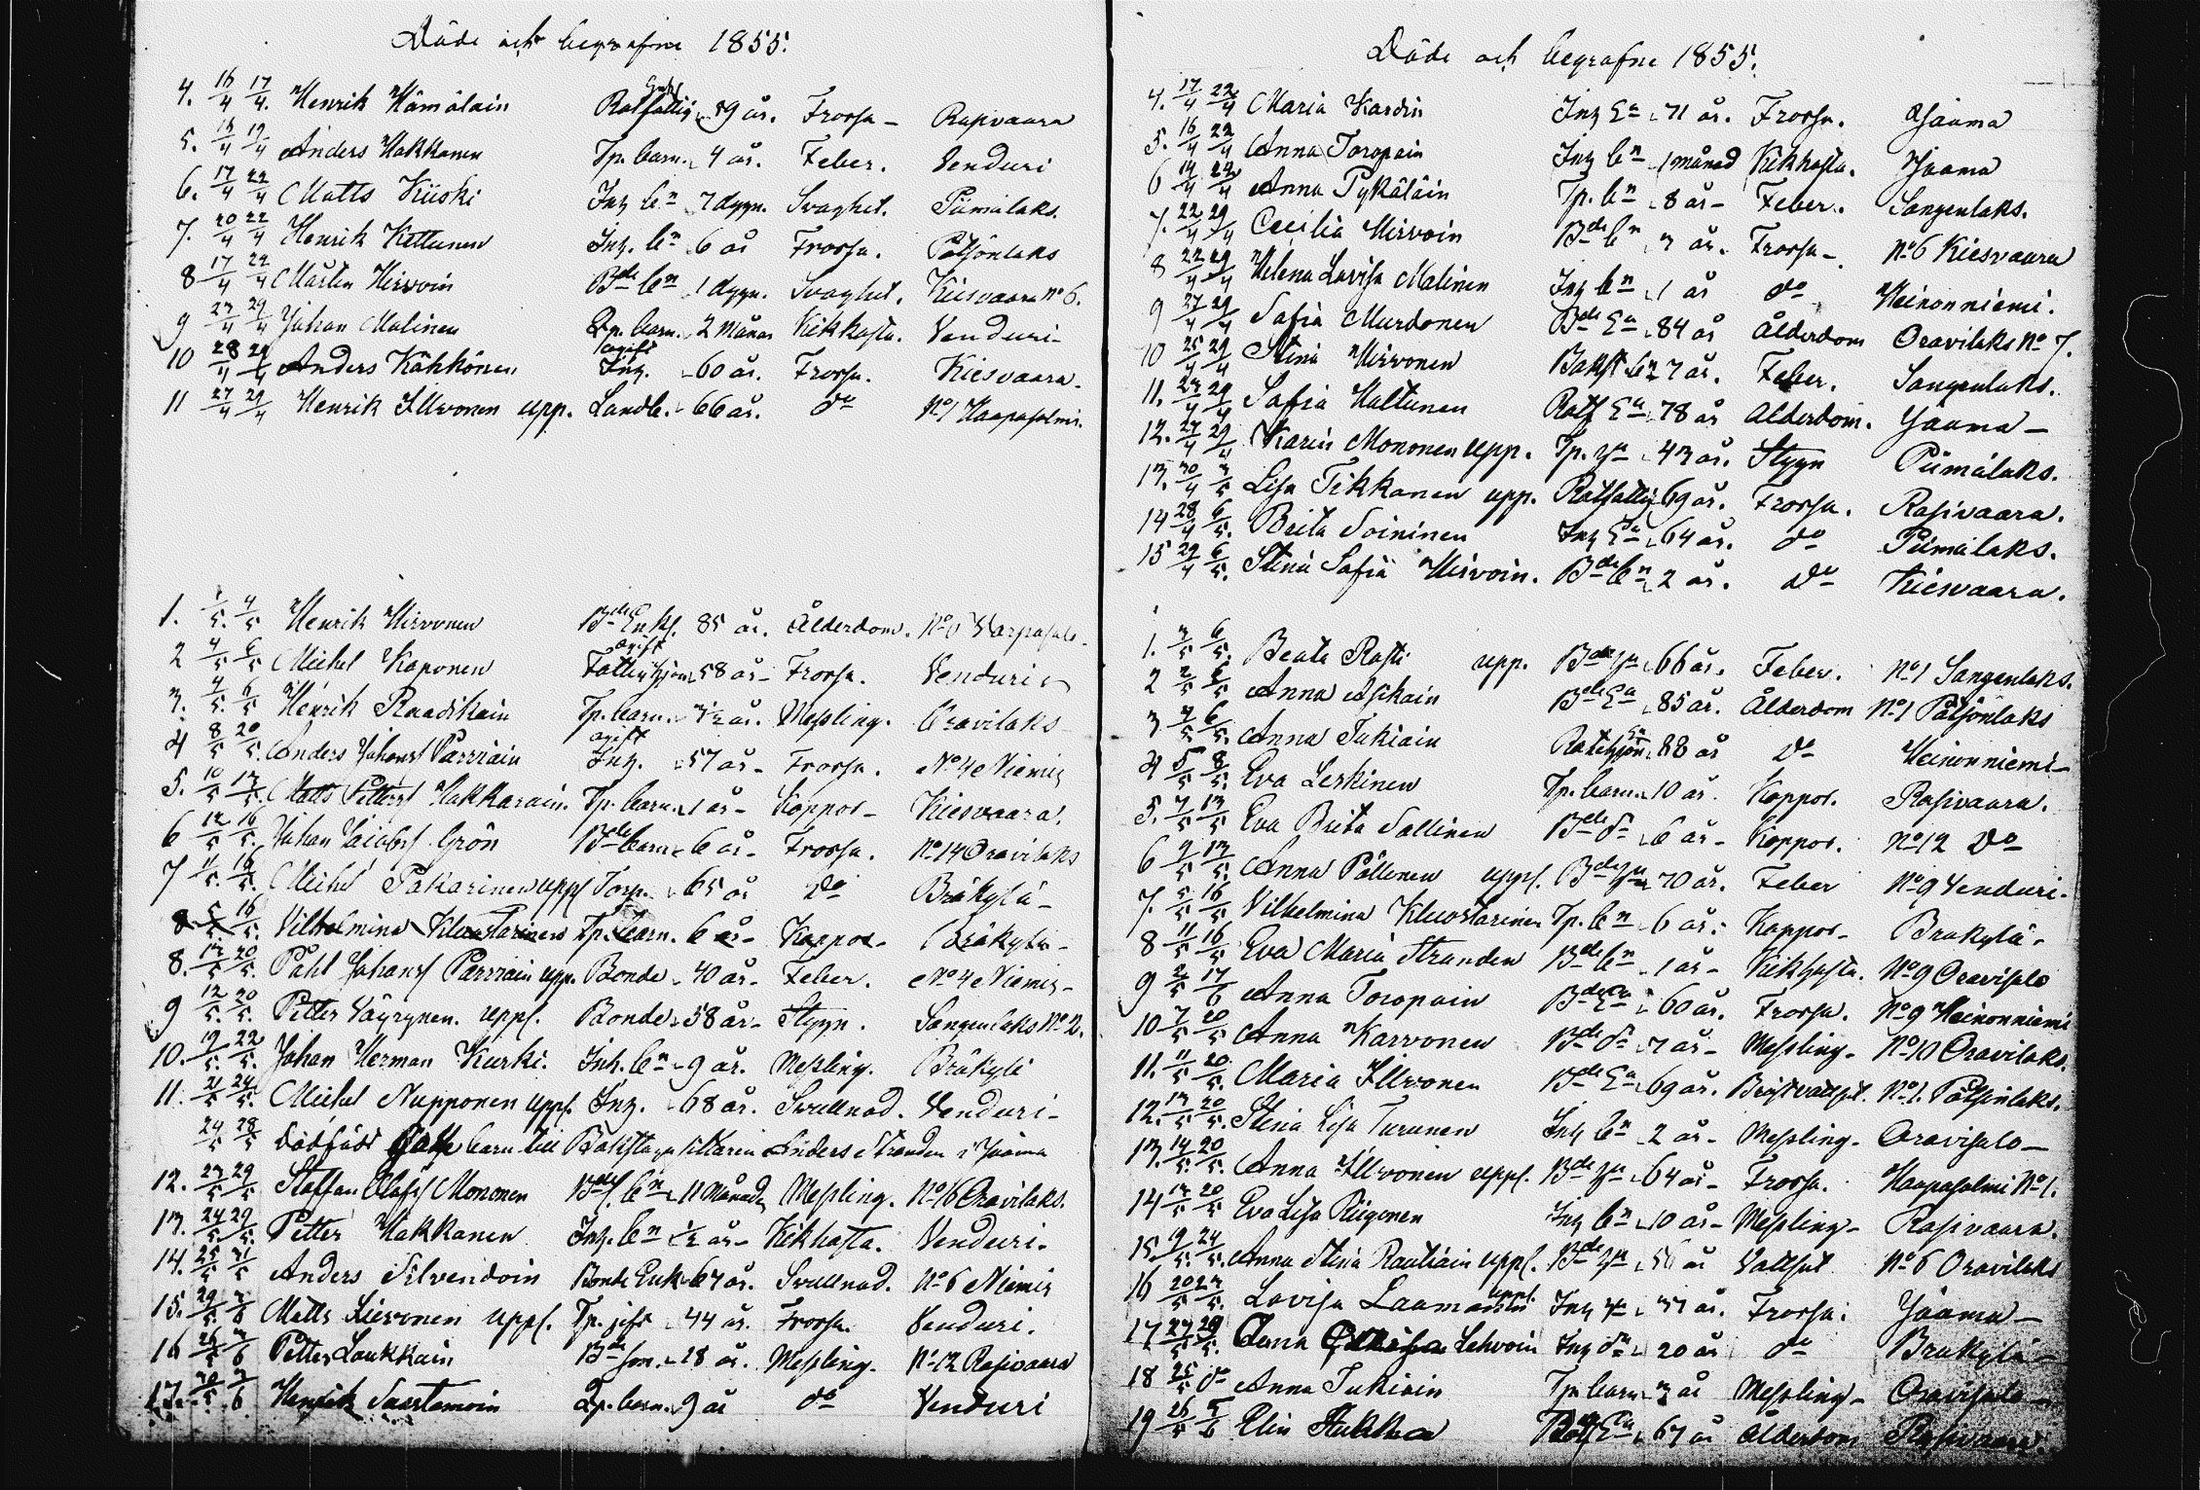 Döde och begrafne 1855.
4. 16/4 17/4. Henrik Hämäläin Rotfattig Enkl. 59 år. Frossa - Rasivaara
5. 16/4 19/4 Anders Hakkanen Tp. barn. 4 år. Feber. Venduri
6. 17/4 22/4 Matts Kiiski Inh bn 7 dygn. Svaghet. Piimälaks.
7. 20/4 22/4 Henrik Kettunen Inh. bn 6 år Frossa. Pötsönlaks
8 17/4 22/4 Mårten Hirvoin Bde bn 1 dygn. Svaghet. Kiesvaara No 6.
9 23/4 29/4 Johan Malinen Tp. barn. 2 månar Kikhosta. Venduri-
10 28/4 29/4 Anders Kähkönen ogift Inh. 60 år. Frossa. Kiesvaara.
11 27/4 29/4 Henrik Illvonen upp. Landb. 66 år. do No 1 Haapasalmi.
1. /5. 4/5 Henrik Hirvonen Bde Enkl. 85 år. Ålderdom. No Varpasalo
2 4/5 6/5 Michel Koponen ogift Fattighjon 58 år - Frossa. Venduri
3. 4/5. 6/5 Henrik Raadikain Tp. barn. 3 1/2 år. Messling. Oravilaks
4 8/5 20/5. Anders Johanss Parviain ogift Inh. 57 år - Frossa. No 4 Niemis
5. 10/5 13/5. Matts Petterss Hakkarain. Tp. barn. 1 år - Koppor - Kiesvaara.
6 12/5 16/5. Johan Jacobss Grön Bde barn 6 år - Frossa. No 14 Oravilaks
7 11/5. 16/5. Michel Pakarinen upps Torp. 65 år do Bråkylä -
8 5/5 16/5. Vilhelmina Kluostarinen Tp. barn. 6 år - Koppor - Bråkylä -
8. 13/5 20/5. Påhl Johanss Parviain upp. Bonde 40 år. Feber. No 4 Niemis -
9 12/5. 20/5. Petter Väyrynen. upps. Bonde 58 år - Stygn. Sangenlaks No 2.
10. 19/5. 22/5. Johan Herman Kurki. Inh. bn 9 år. Messling. Bråkylä
11. 21/5 24/5. Michel Nupponen upps. Inh. 68 år. Svullnad. Venduri -
24/5 28/5 dödfödt barn till Bakst Anders Stranden i Jaama
12. 23/5 29/5 Staffan Olofss Mononen Bds. bn 11 månad Messling. No 16 Oravilaks.
13. 24/5 29/5. Petter Hakkanen Inh. bn 1/2 år - Kikhosta. Venduri.
14. 25/5 31/5 Anders Silvendoin Bonde Enk 67 år. Svullnad. No 6 Niemis
15. 29/5 3/6 Matts Lievonen upps. Tp. gift 44 år. Frossa. Venduri.
16 26/5 3/6 Petter Laukkain Bde son. 18 år. Messling. No 12 Rasivaara
17. 30/5 3/6 Henrik Saastamoin Tp. barn. 9 år do Venduri
Döde och begrafne 1855.
4. 17/4 22/4 Maria Kardin Inh Ea 71 år. Frossa. Jaama
5. 16/4 22/4 Anna Toropain Inh bn 1 månad Kikhosta. Jaama
6 19/4 22/4 Anna Pykäläin Tp. bn 8 år - Feber. Sangenlaks.
7. 22/4 29/4 Cecilia Hirvoin Bde bn 3 år. Frossa -. No 6 Kiesvaara
8 22/4 29/4 Helena Lovisa Malinen Inh bn 1 år do Heinonniemi.
9 27/4 29/4 Safia Murdonen Bde Ea 84 år Ålderdom Oravilaks No 7.
10 25/4 29/4 Stina Hirvonen Bakst bn 7 år. Feber. Sangenlaks.
11. 23/4 29/4 Safia Haltunen Rotf Ea 78 år Ålderdom. Jaama -
12. 27/4 29/4 Karin Mononen upp. Tp. ga 43 år. Stygn Piimälaks.
13. 30/4 3/5 Lisa Tikkanen upp. Rotfattig 69 år. Frossa. Rasivaara.
14 28/4 6/5. Brita Soininen Inh Ea 64 år. do Piimälaks.
15 29/4 6/5. Stina Safia Hirvoin. Bde bn 2 år. do Kiesvaara.
1. 3/5 6/5. Beata Rosti upp. Bde ga 66 år. Feber. No 1 Sangenlaks.
2 2/5 6/5 Anna Asikain Bde Ea 85 år. Ålderdom No 1 Pötsönlaks
3 3/5 6/5. Anna Tukiain Rotehjon Ea 88 år do Heinonniemi -
4 5/5 8/5 Eva Leskinen Tp. barn 10 år. Koppor. Rasivaara.
5. 7/5 13/5 Eva Brita Sallinen Bde do 6 år - Koppor. No 12 do
6 9/5 13/5. Anna Pöllönen upps. Bde ga 70 år. Feber No 9 Venduri.
7. 5/5 16/5 Vilhelmina Kluostarinen Tp. bn 6 år. Koppor - Bråkylä -
8 11/5 16/5 Eva Maria Stranden Bde bn 1 år - Kikhosta. No 9 Oravisalo
9 /5 17/6 Anna Toropain Bde Ea 60 år. Frossa. No 9 Heinonniemi
10. 7/5 20/5 Anna Karvonen Bde do 7 år - Messling - No 10 Oravilaks.
11. 11/5 20/5. Maria Illvonen Bde Ea 69 år. Bröstvattsot. No 1. Pötsönlaks.
12. 13/5 20/5. Stina Lisa Turunen Inh bn 2 år - Messling - Oravisalo -
13. 14/5 20/5. Anna Illvonen upps. Bde ga 64 år - Frossa. Haapasalmi No 1.
14 13/5 20/5 Eva Lisa Riigonen Inh bn 10 år - Messling - Rasivaara.
15 9/5. 24/5. Anna Stina Rautiain upps. Bde ga 56 år Vattsot No 6 Oravilaks
16 20/5 27/5. Lovisa Laamanin upps. Inh ga 37 år. Frossa. Jaama -
17 27/5 29/5. Anna Lehvoin Inh do 20 år do Bråkylä -
18 25/5 do Anna Tukiain Tp. barn 3 år Messling - Oravisalo -
19 26/5 5/6 Elin Hukka Rotf Ea 67 år Ålderdom Rasivaara.